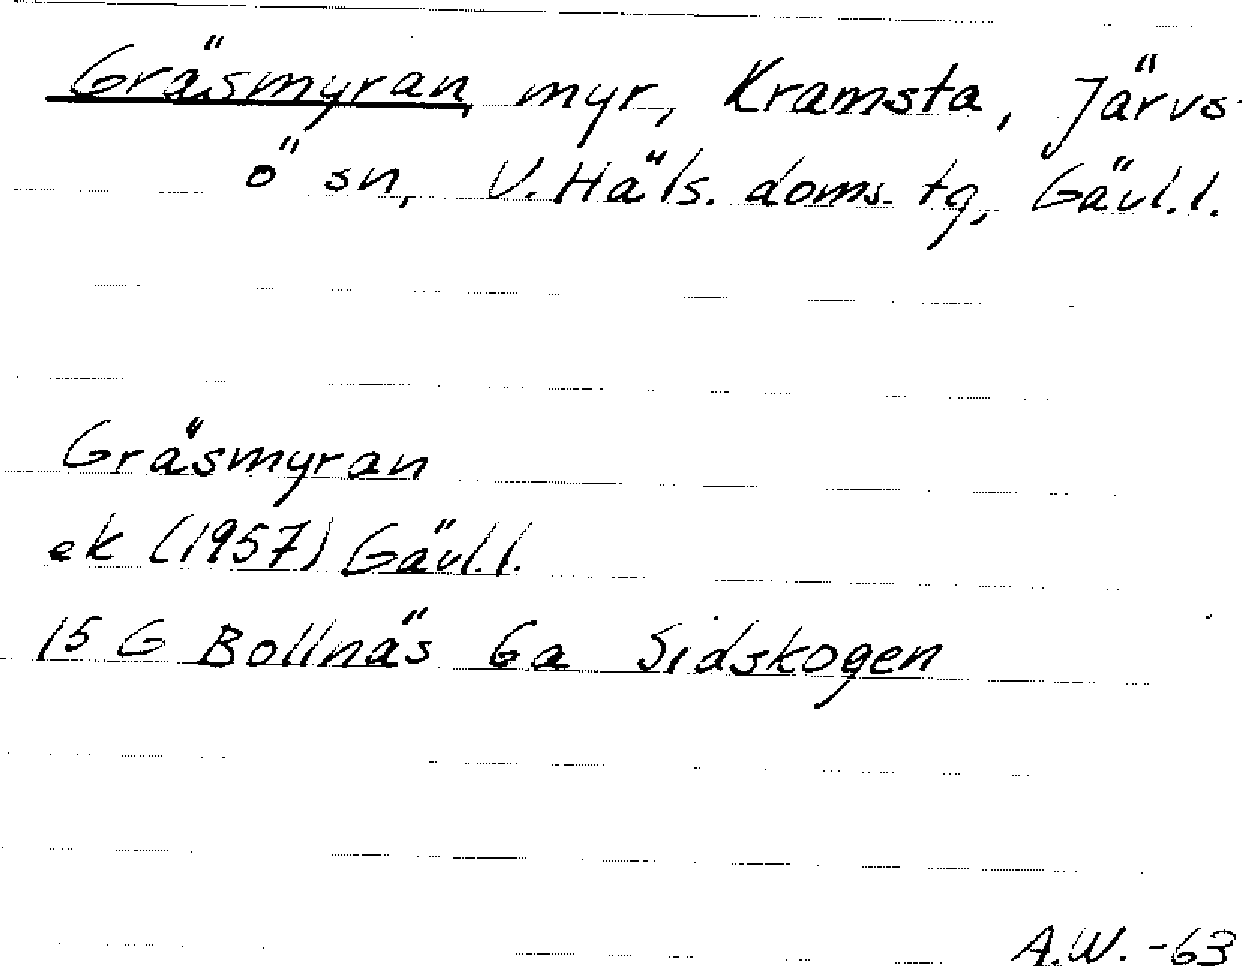 Gräsmyran, myr, Kramsta, Järvs-
ö sn, V. Häls. doms. tg, Gävl.l.
Gräsmyran
ek (1957) Gävl.l.
15 G Bollnäs 6a Sidskogen
A.W. -63